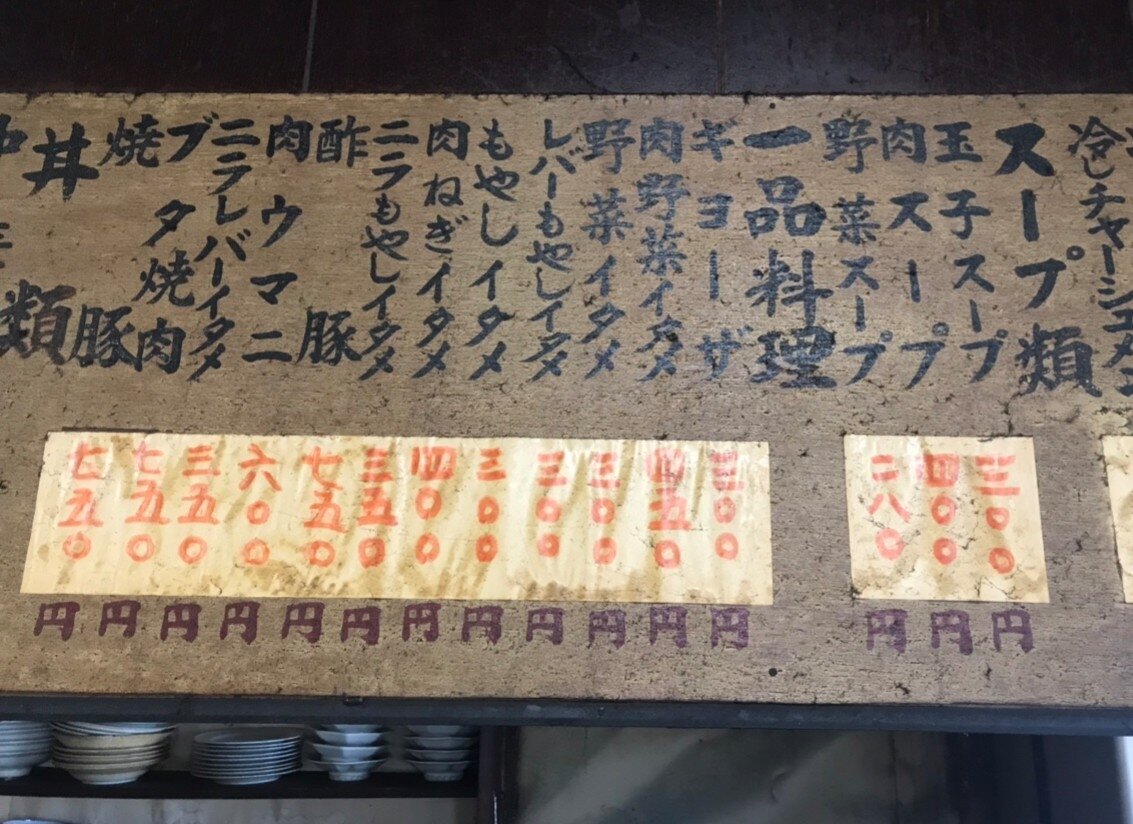 冷しチャーシュ
スープ類
玉子スープ
三〇〇円
肉スープ
四〇〇円
野菜スープ
二八〇円
一品料理
ギヨーザ
三〇〇円
肉野菜イタメ
四五〇円
野菜イタメ
三〇〇円
レバーもやしイタメ
三〇〇円
もやしイタメ
三〇〇円
肉ねぎイタメ
四〇〇円
ニラもやしイタメ
三五〇円
酢豚
七五〇円
肉ウマニ
六〇〇円
ニラレバーイタメ
三五〇円
ブタ焼肉
七五〇円
焼豚
七五〇円
丼類